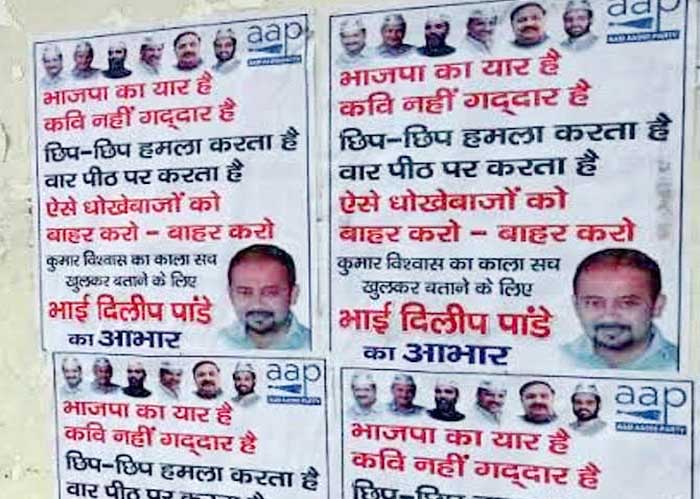 aap
AAM AADMI PARTY
भाजपा का यार है
कवि नहीं गद्दार है
छिप-छिप हमला करता है
वार पीठ पर करता है
ऐसे धोखेबाजों को
बाहर करो - बाहर करो
कुमार विश्वास का काला सच
खुलकर बताने के लिए
भाई दिलीप पांडे
का आभार
aap
AAM AADMI PARTY
भाजपा का यार है
कवि नहीं गद्दार है
छिप-छिप हमला करता है
वार पीठ पर करता है
ऐसे धोखेबाजों को
बाहर करो - बाहर करो
कुमार विश्वास का काला सच
खुलकर बताने के लिए
भाई दिलीप पांडे
का आभार
aap
AAM AADMI PARTY
भाजपा का यार है
कवि नहीं गद्दार है
छिप-छिप हमला करता है
वार पीठ पर करता है
aap
AAM AADMI PARTY
भाजपा का यार है
कवि नहीं गद्दार है
छिप-छिप हमला करता है